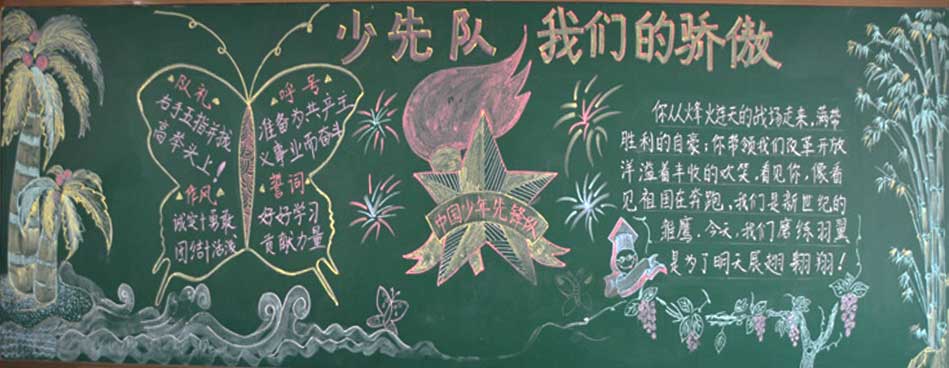 少先队 我们的骄傲
队礼
右手五指并拢
高举头上!
作风
诚实十勇敢
团结十活泼
呼号
准备为共产主
义事业而奋斗
誓词
好好学习
贡献力量
中国少年先锋队
你从烽火连天的战场走来,满带
胜利的自豪;你带领我们改革开放
洋溢着丰收的欢笑,看见你,像看
见祖国在奔跑,我们是新世纪的
雏鹰,今天,我们磨练羽翼
是为了明天展翅翱翔!